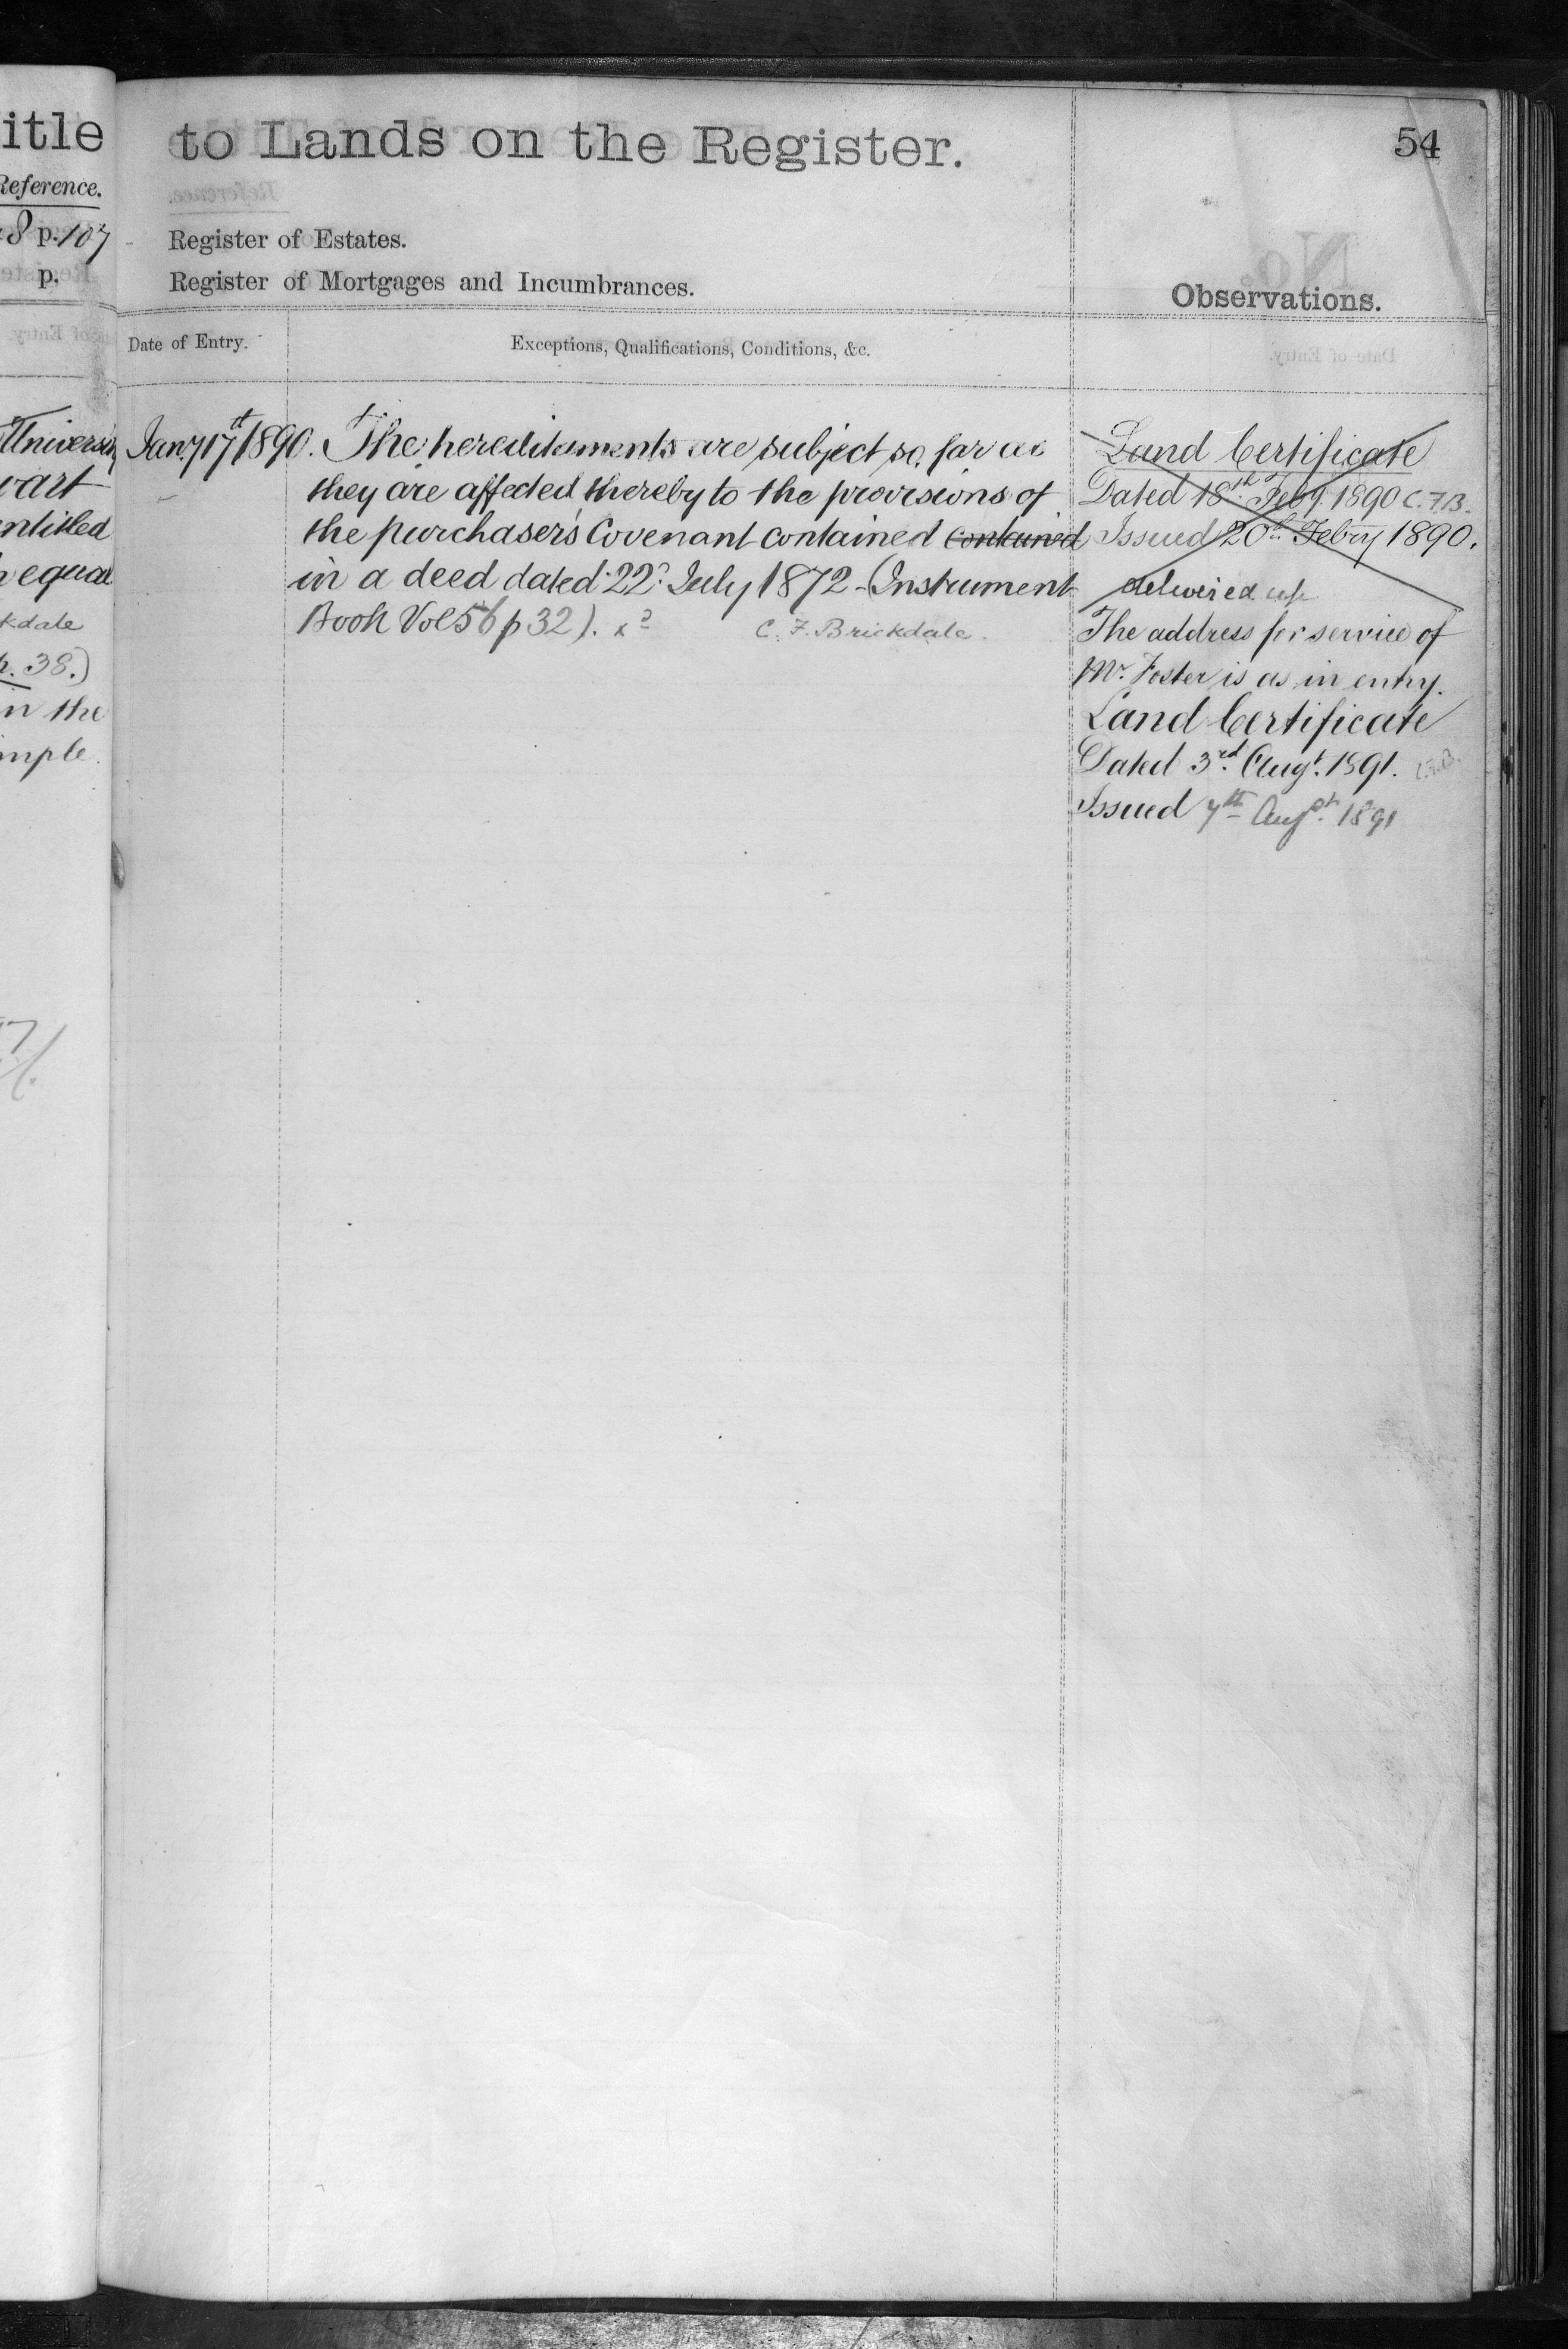 itle
Reference.
8 p. 107
p.
Univers
art
ntitled
equal
kdale
p. 38.)
in the
mple.
to Lands on the Register.
54
Register of Estates.
Register of Mortgages and Incumbrances.
Observations.
Date of Entry.
Exceptions, Qualifications, Conditions, &c.
Jany 17th 1890.
The hereditaments are subject so far as
they are affected thereby to the provisions of
the purchaser's Covenant contained contained
in a deed dated 22d July 1872 - (Instrument
Book Vol 56 p 32). x2
C. F. Brickdale.
Land Certificate
Dated 18th Feby 1890 C.F.B.
Issued 20th Febry 1890.
delivered up
The address for service of
Mr. Foster is as in entry.
Land Certificate
Dated 3rd Augt. 1891. C.F.B.
Issued 7th Augst. 1891